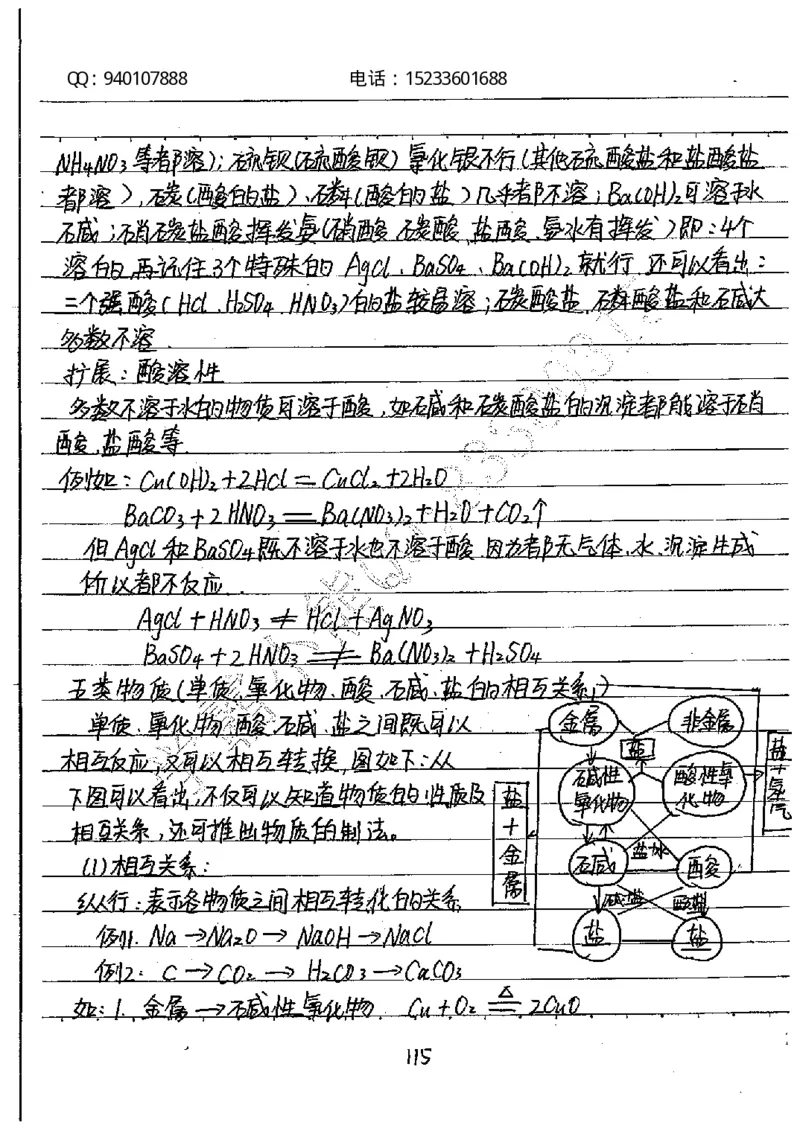 QQ：940107888 电话：15233601688
NH4NO3等都溶）；硫钡（硫酸钡）氯化银不行（其他硫酸盐和盐酸盐
都溶），碳（酸的盐）、磷（酸的盐）几乎都不溶；Ba(OH)2可溶于水
碱；硝碳盐酸挥发氨（硝酸 碳酸 盐酸、氨水有挥发）即：4个
溶的 再记住3个特殊的 AgCl、BaSO4、Ba(OH)2 就行 还可以看出：
三个强酸（HCl、H2SO4、HNO3）的盐较易溶；碳酸盐、磷酸盐和碱大
多数不溶.
扩展：酸溶性
多数不溶于水的物质可溶于酸，如碱和碳酸盐的沉淀都能溶于硝
酸、盐酸等.
例如：Cu(OH)2+2HCl=CuCl2+2H2O
BaCO3+2HNO3=Ba(NO3)2+H2O+CO2↑
但AgCl和BaSO4既不溶于水也不溶于酸.因为都无气体、水、沉淀生成
所以都不反应.
AgCl+HNO3≠HCl+AgNO3
BaSO4+2HNO3≠Ba(NO3)2+H2SO4
五类物质（单质、氧化物、酸、碱、盐的相互关系）
单质、氧化物 酸 碱、盐之间既可以
相互反应，又可以相互转换，图如下：从
下图可以看出，不仅可以知道物质的性质及
相互关系，还可推出物质的制法。
(1)相互关系：
纵行：表示各物质之间相互转化的关系
例1. Na→Na2O→NaOH→NaCl
例2：C→CO2→H2CO3→CaCO3
如：1. 金属→碱性氧化物 Cu+O2 △= 2CuO
金属 非金属
盐
碱性氧化物 酸性氧化物
盐+金属
盐+氢气
碱 盐水 酸
碱盐 酸盐
盐 盐
115